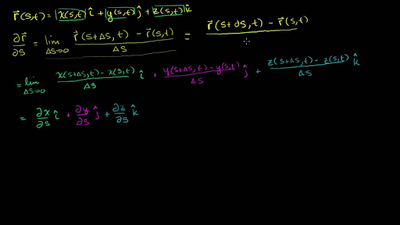 r⃗(s,t) = x(s,t) î + y(s,t) ĵ + z(s,t) k̂
∂r⃗/∂s = lim Δs→0 (r⃗(s+Δs,t) − r⃗(s,t))/Δs = r⃗(s+∂s,t) − r⃗(s,t)
= lim Δs→0 (x(s+Δs,t) − x(s,t))/Δs î + (y(s+Δs,t) − y(s,t))/Δs ĵ + (z(s+Δs,t) − z(s,t))/Δs k̂
= ∂x/∂s î + ∂y/∂s ĵ + ∂z/∂s k̂